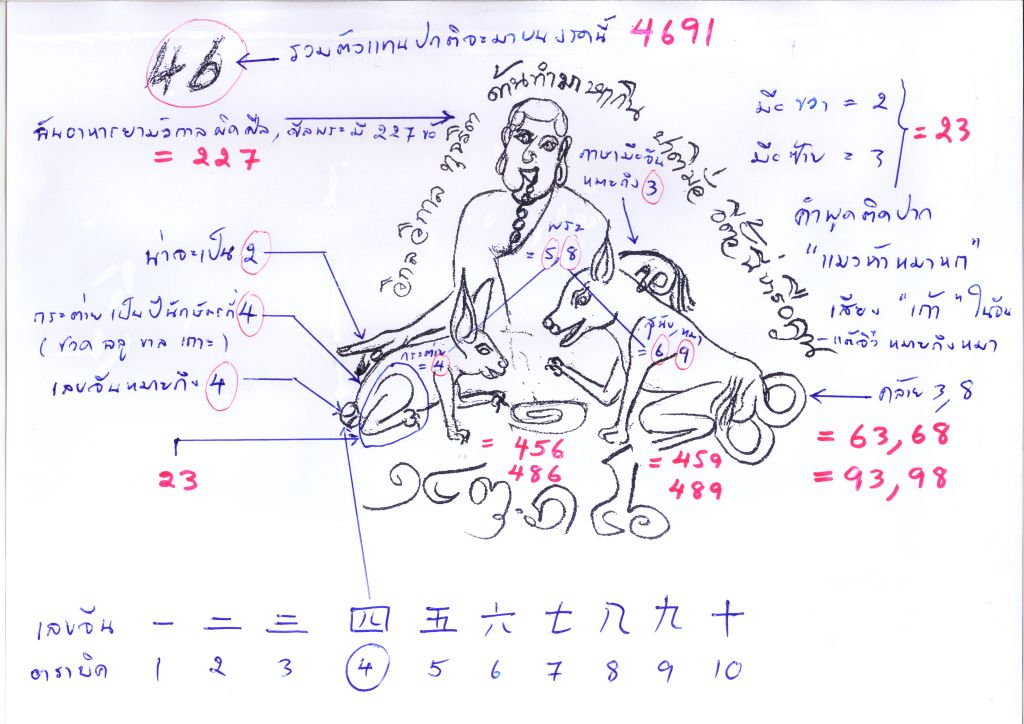 46
รวมตัวแทนปกติจะมาบน งวดนี้ 4691
ต้นทำมาหากิน
ฉันอาหารยามวิกาล ผิดศีล, ศีลพระมี 227 ข้อ
= 227
มือขวา = 2
มือซ้าย = 3
= 23
ภาษามือจีน
หมายถึง 3
คำพูดติดปาก
"แมวห้าหมาหก"
เสียง "เก้า" ในจีน
แต้จิ๋ว หมายถึงหมา
น่าจะเป็น 2
พระ
= 5, 8
กระต่าย เป็นปีนักษัตรที่ 4
(ชวด ฉลู ขาล เถาะ)
เลขจีนหมายถึง 4
กระต่าย
= 4
สุนัข หมา
= 6 9
คล้าย 3, 8
= 63, 68
= 93, 98
23
= 456
486
= 459
489
เลขจีน 一 二 三 四 五 六 七 八 九 十
อาราบิค 1 2 3 4 5 6 7 8 9 10